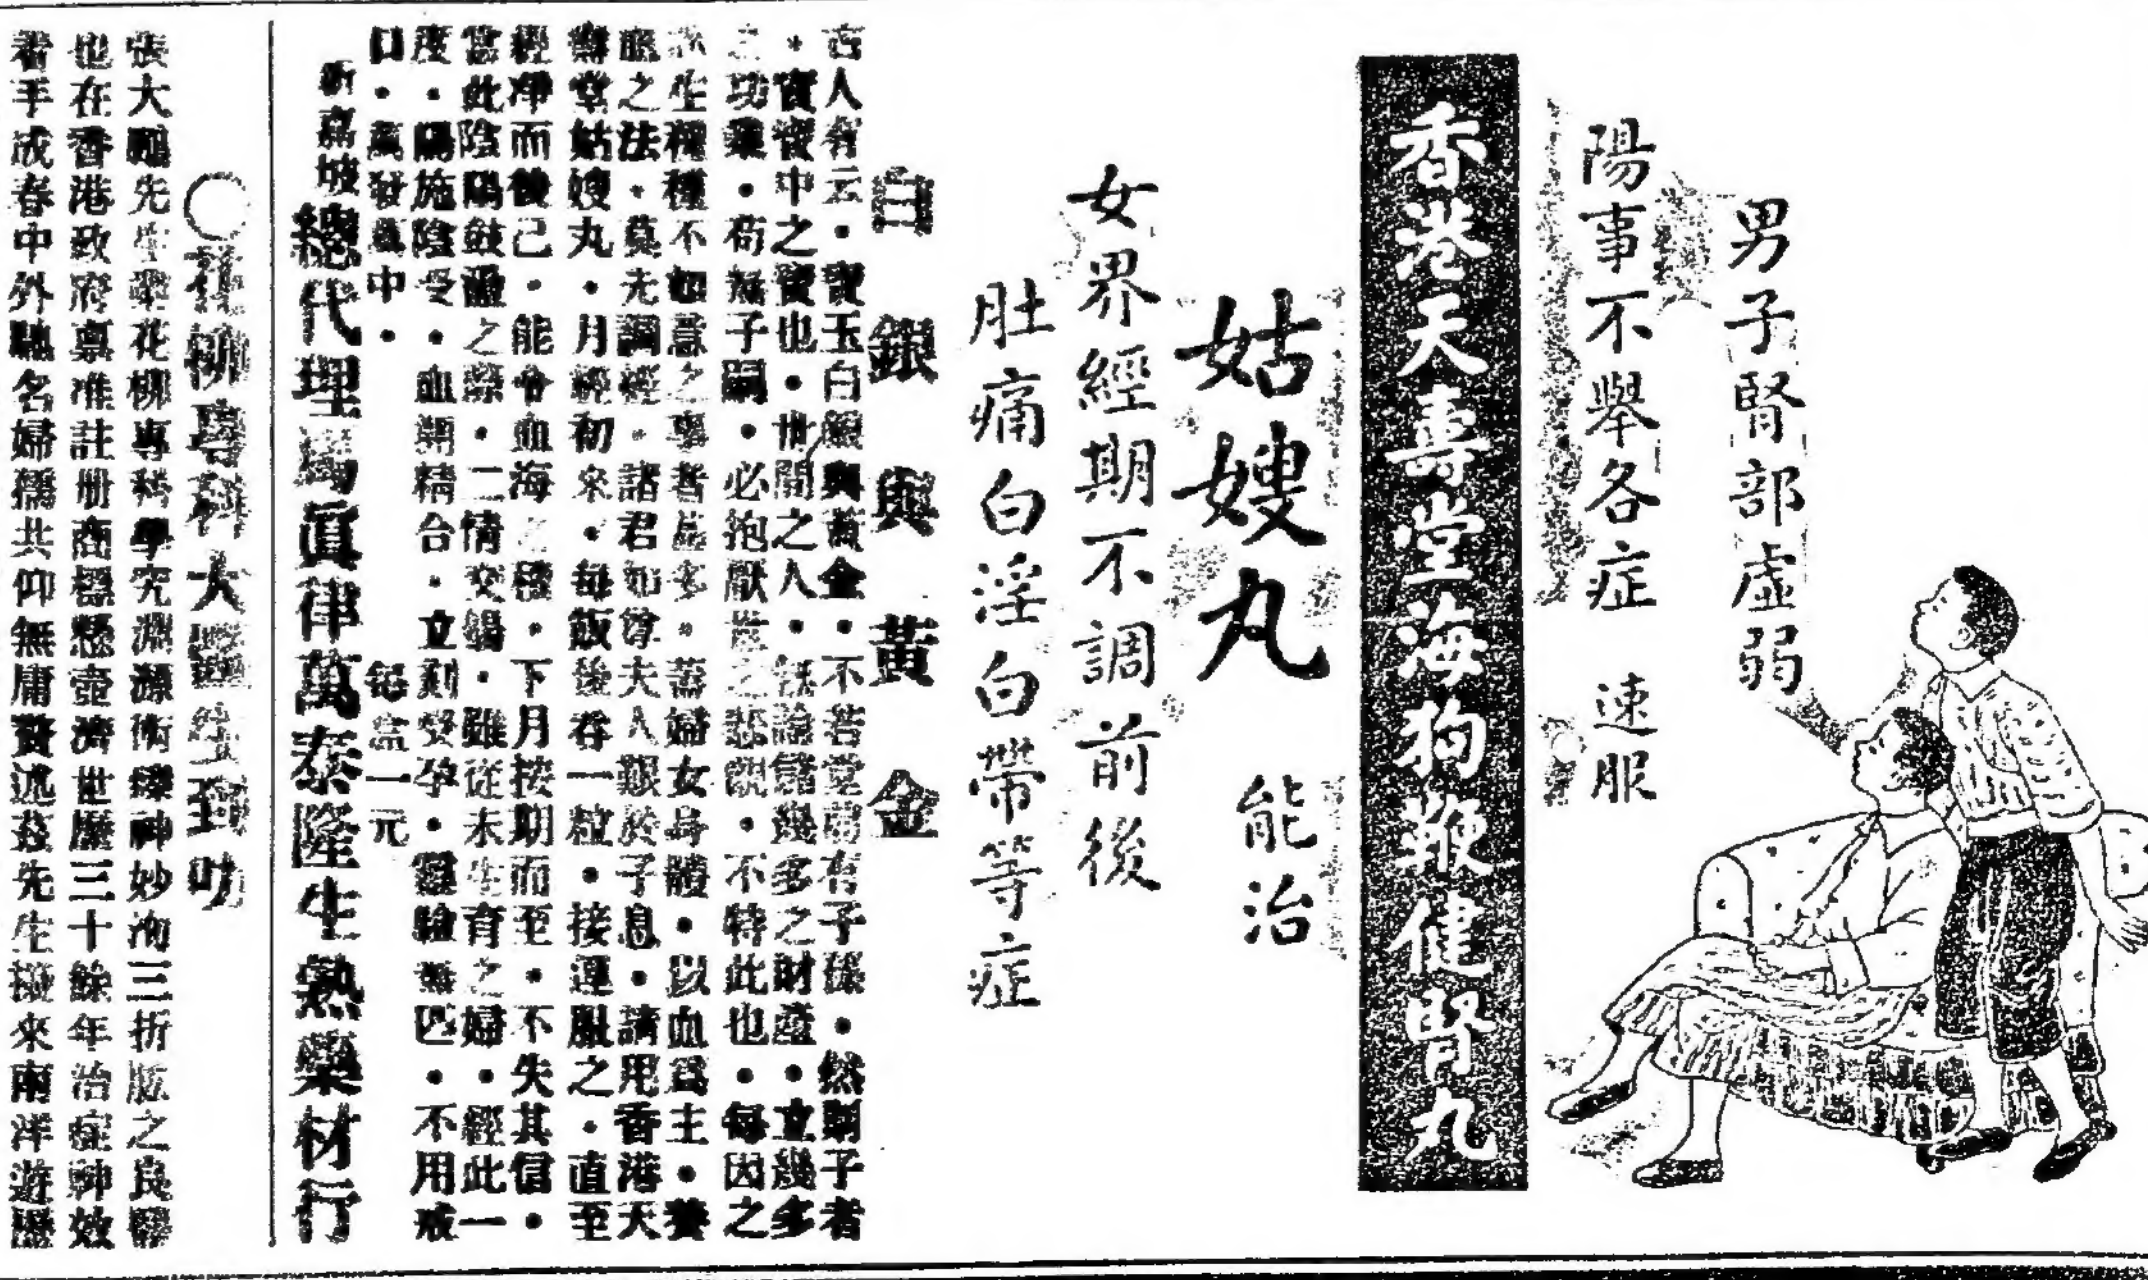 男子腎部虛弱
陽事不舉各症　速服
香港天壽堂海狗鞭健腎丸
姑嫂丸　能治
女界經期不調前後
肚痛白淫白帶等症
白銀與黃金
古人有云・寶玉白銀與黃金・不若堂前有子孫・然則子者
・寶寶中之寶也・世間之人・無論儲幾多之財產・立幾多
之功業・苟無子嗣・必抱厭世之悲觀・不特此也・每因之
生種種不如意之事者甚多・蓋婦女身體・以血爲主・養
血之法・莫先調經・諸君如尊夫人艱於子息・請用香港天
壽堂姑嫂丸・月經初來・每飯後吞一粒・接連服之・直至
經凈而後已・能令血海之穩・下月按期而至・不失其信・
當此陰陽鼓盪之際・二情交暢・雖從未生育之婦・經此一
度・陽施陰受・血期精合・立刻受孕・靈驗無匹・不用戒
口・萬發萬中・　每盒一元
新嘉坡總代理處眞律萬泰隆生熟藥材行
〇花柳專科大醫生到叻
張大 先生 花柳專科學究淵源術 神妙洵三折肱之良醫
也在香港政府稟准註册商標懸壺濟世歷三十餘年治症神效
着手成春中外馳名婦孺共仰無庸贅述茲先生 來南洋遊歷